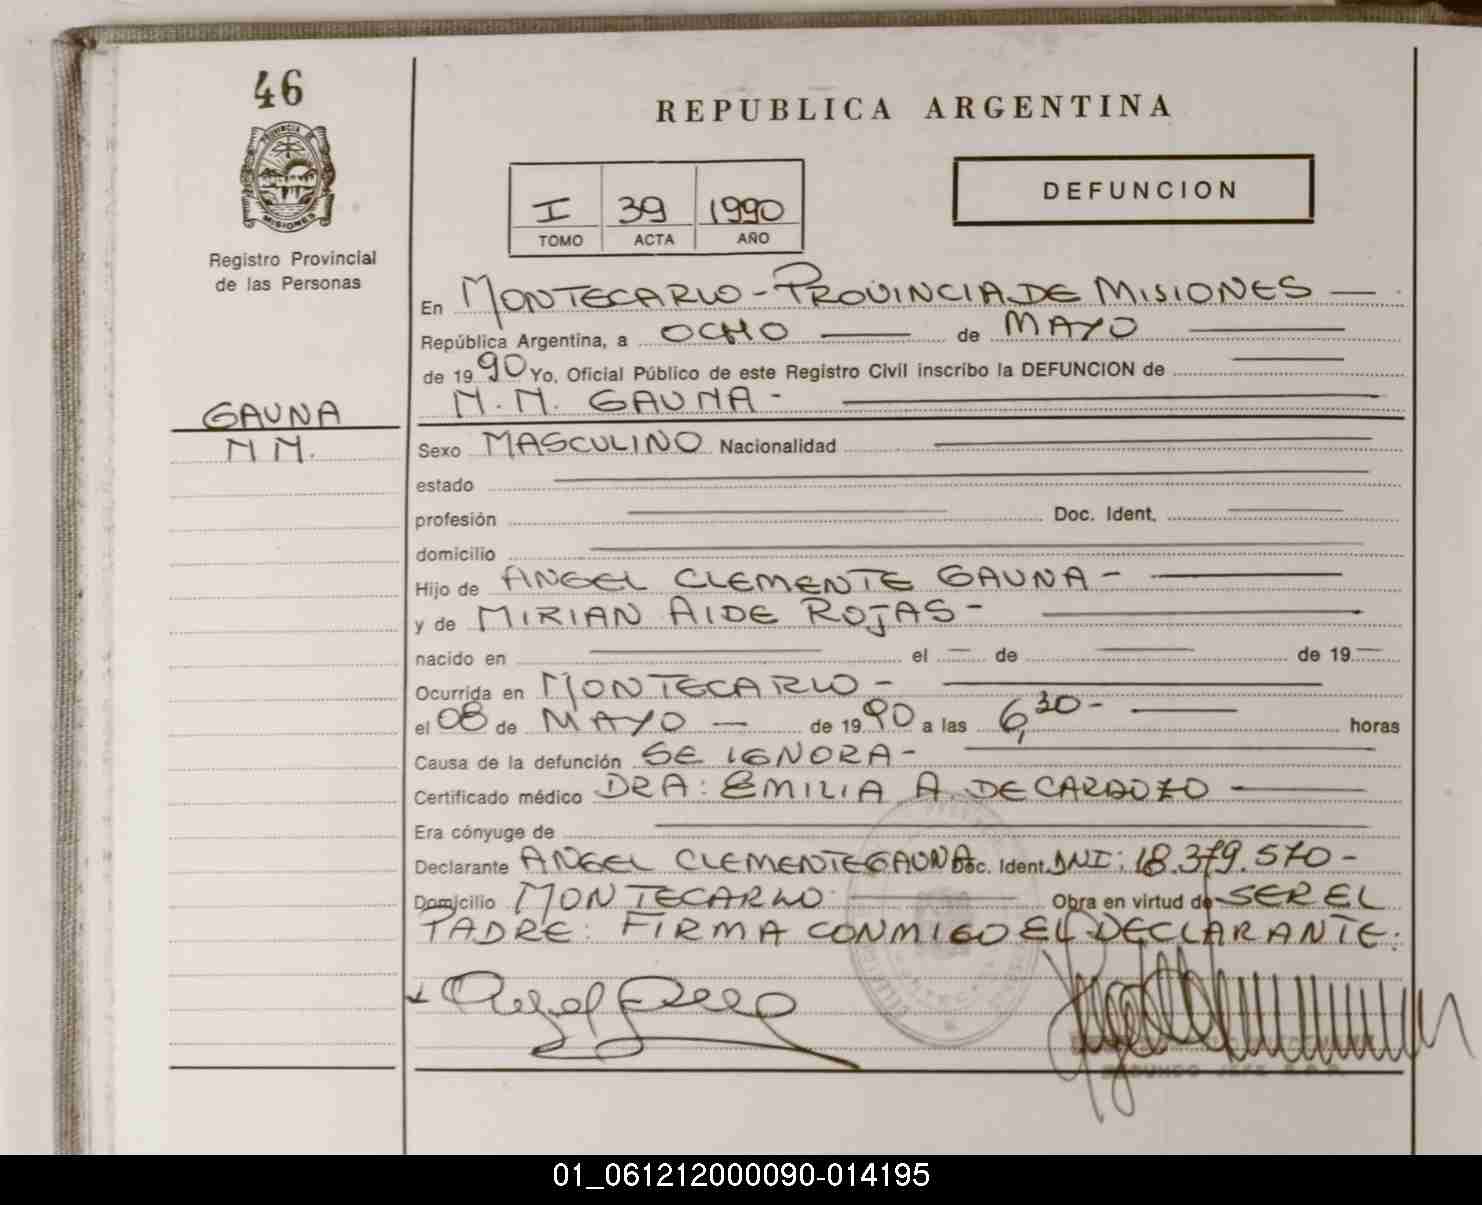 46
PROVINCIA DE
MISIONES
Registro Provincial
de las Personas
GAUNA
N N.
REPUBLICA ARGENTINA
I 39 1990
TOMO ACTA AÑO
DEFUNCION
En MONTECARLO - PROVINCIA DE MISIONES
República Argentina, a OCHO de MAYO
de 1990 Yo, Oficial Público de este Registro Civil inscribo la DEFUNCION de
N. N. GAUNA -
Sexo MASCULINO Nacionalidad
estado
profesión Doc. Ident.
domicilio
Hijo de ANGEL CLEMENTE GAUNA -
y de MIRIAN AIDE ROJAS -
nacido en el — de — de 19 —
Ocurrida en MONTECARLO -
el 08 de MAYO — de 1990 a las 6,30 - horas
Causa de la defunción SE IGNORA -
Certificado médico DRA: EMILIA A. DE CARDOZO
Era cónyuge de
Declarante ANGEL CLEMENTE GAUNA Doc. Ident. DNI: 18.379.570 -
Domicilio MONTECARLO Obra en virtud de SER EL
PADRE: FIRMA CONMIGO EL DECLARANTE.
SEGUNDO JEFE
01_061212000090-014195